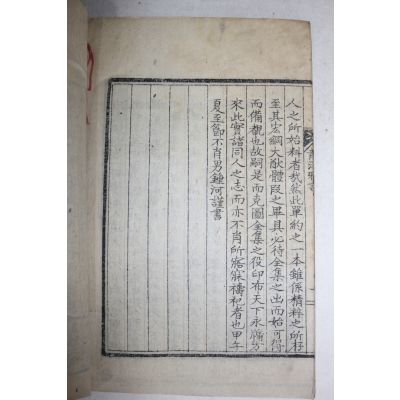 人之所始料者哉然此單約之一本雖係精粹之所存
至其宏綱大猷體段之畢具必待全集之出而始可得
而備覩也故嗣是而克圖全集之役印布天下永廱方
來此實諸同人之志而亦不肖所寤寐禱祀者也甲午
夏至節不肖男鍾河謹書